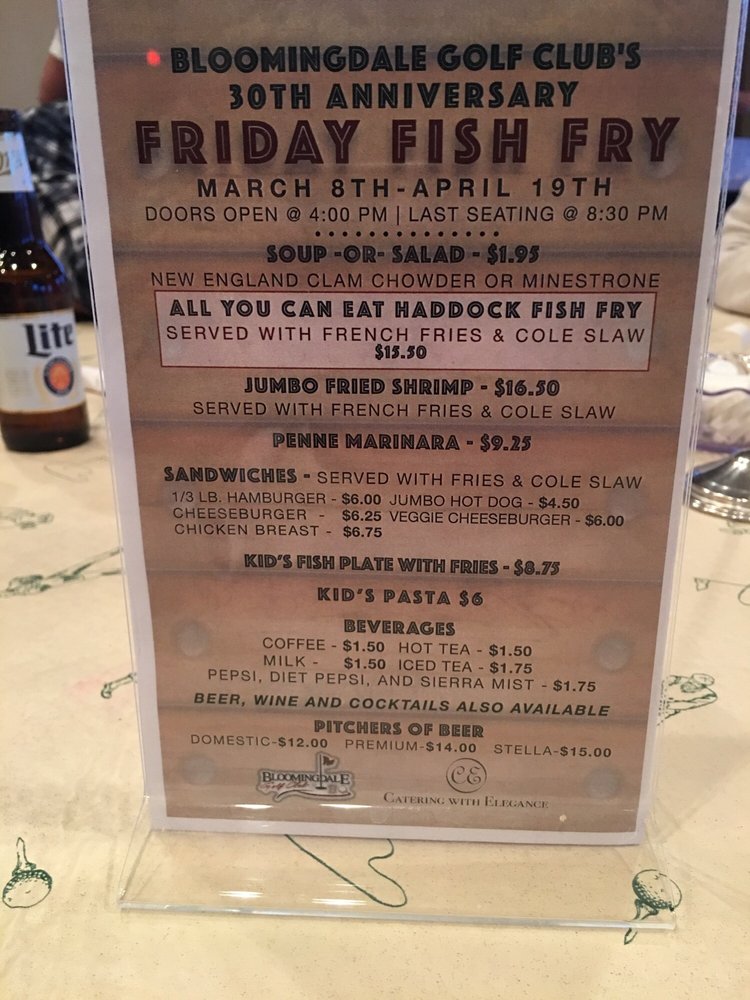 BLOOMINGDALE GOLF CLUB'S
30TH ANNIVERSARY
FRIDAY FISH FRY
MARCH 8TH-APRIL 19TH
DOORS OPEN @ 4:00 PM | LAST SEATING @ 8:30 PM
SOUP -OR- SALAD - $1.95
NEW ENGLAND CLAM CHOWDER OR MINESTRONE
ALL YOU CAN EAT HADDOCK FISH FRY
SERVED WITH FRENCH FRIES & COLE SLAW
$15.50
JUMBO FRIED SHRIMP - $16.50
SERVED WITH FRENCH FRIES & COLE SLAW
PENNE MARINARA - $9.25
SANDWICHES - SERVED WITH FRIES & COLE SLAW
1/3 LB. HAMBURGER - $6.00 JUMBO HOT DOG - $4.50
CHEESEBURGER - $6.25 VEGGIE CHEESEBURGER - $6.00
CHICKEN BREAST - $6.75
KID'S FISH PLATE WITH FRIES - $8.75
KID'S PASTA $6
BEVERAGES
COFFEE - $1.50 HOT TEA - $1.50
MILK - $1.50 ICED TEA - $1.75
PEPSI, DIET PEPSI, AND SIERRA MIST - $1.75
BEER, WINE AND COCKTAILS ALSO AVAILABLE
PITCHERS OF BEER
DOMESTIC-$12.00 PREMIUM-$14.00 STELLA-$15.00
BLOOMINGDALE
Golf Club
CE
CATERING WITH ELEGANCE
Lite